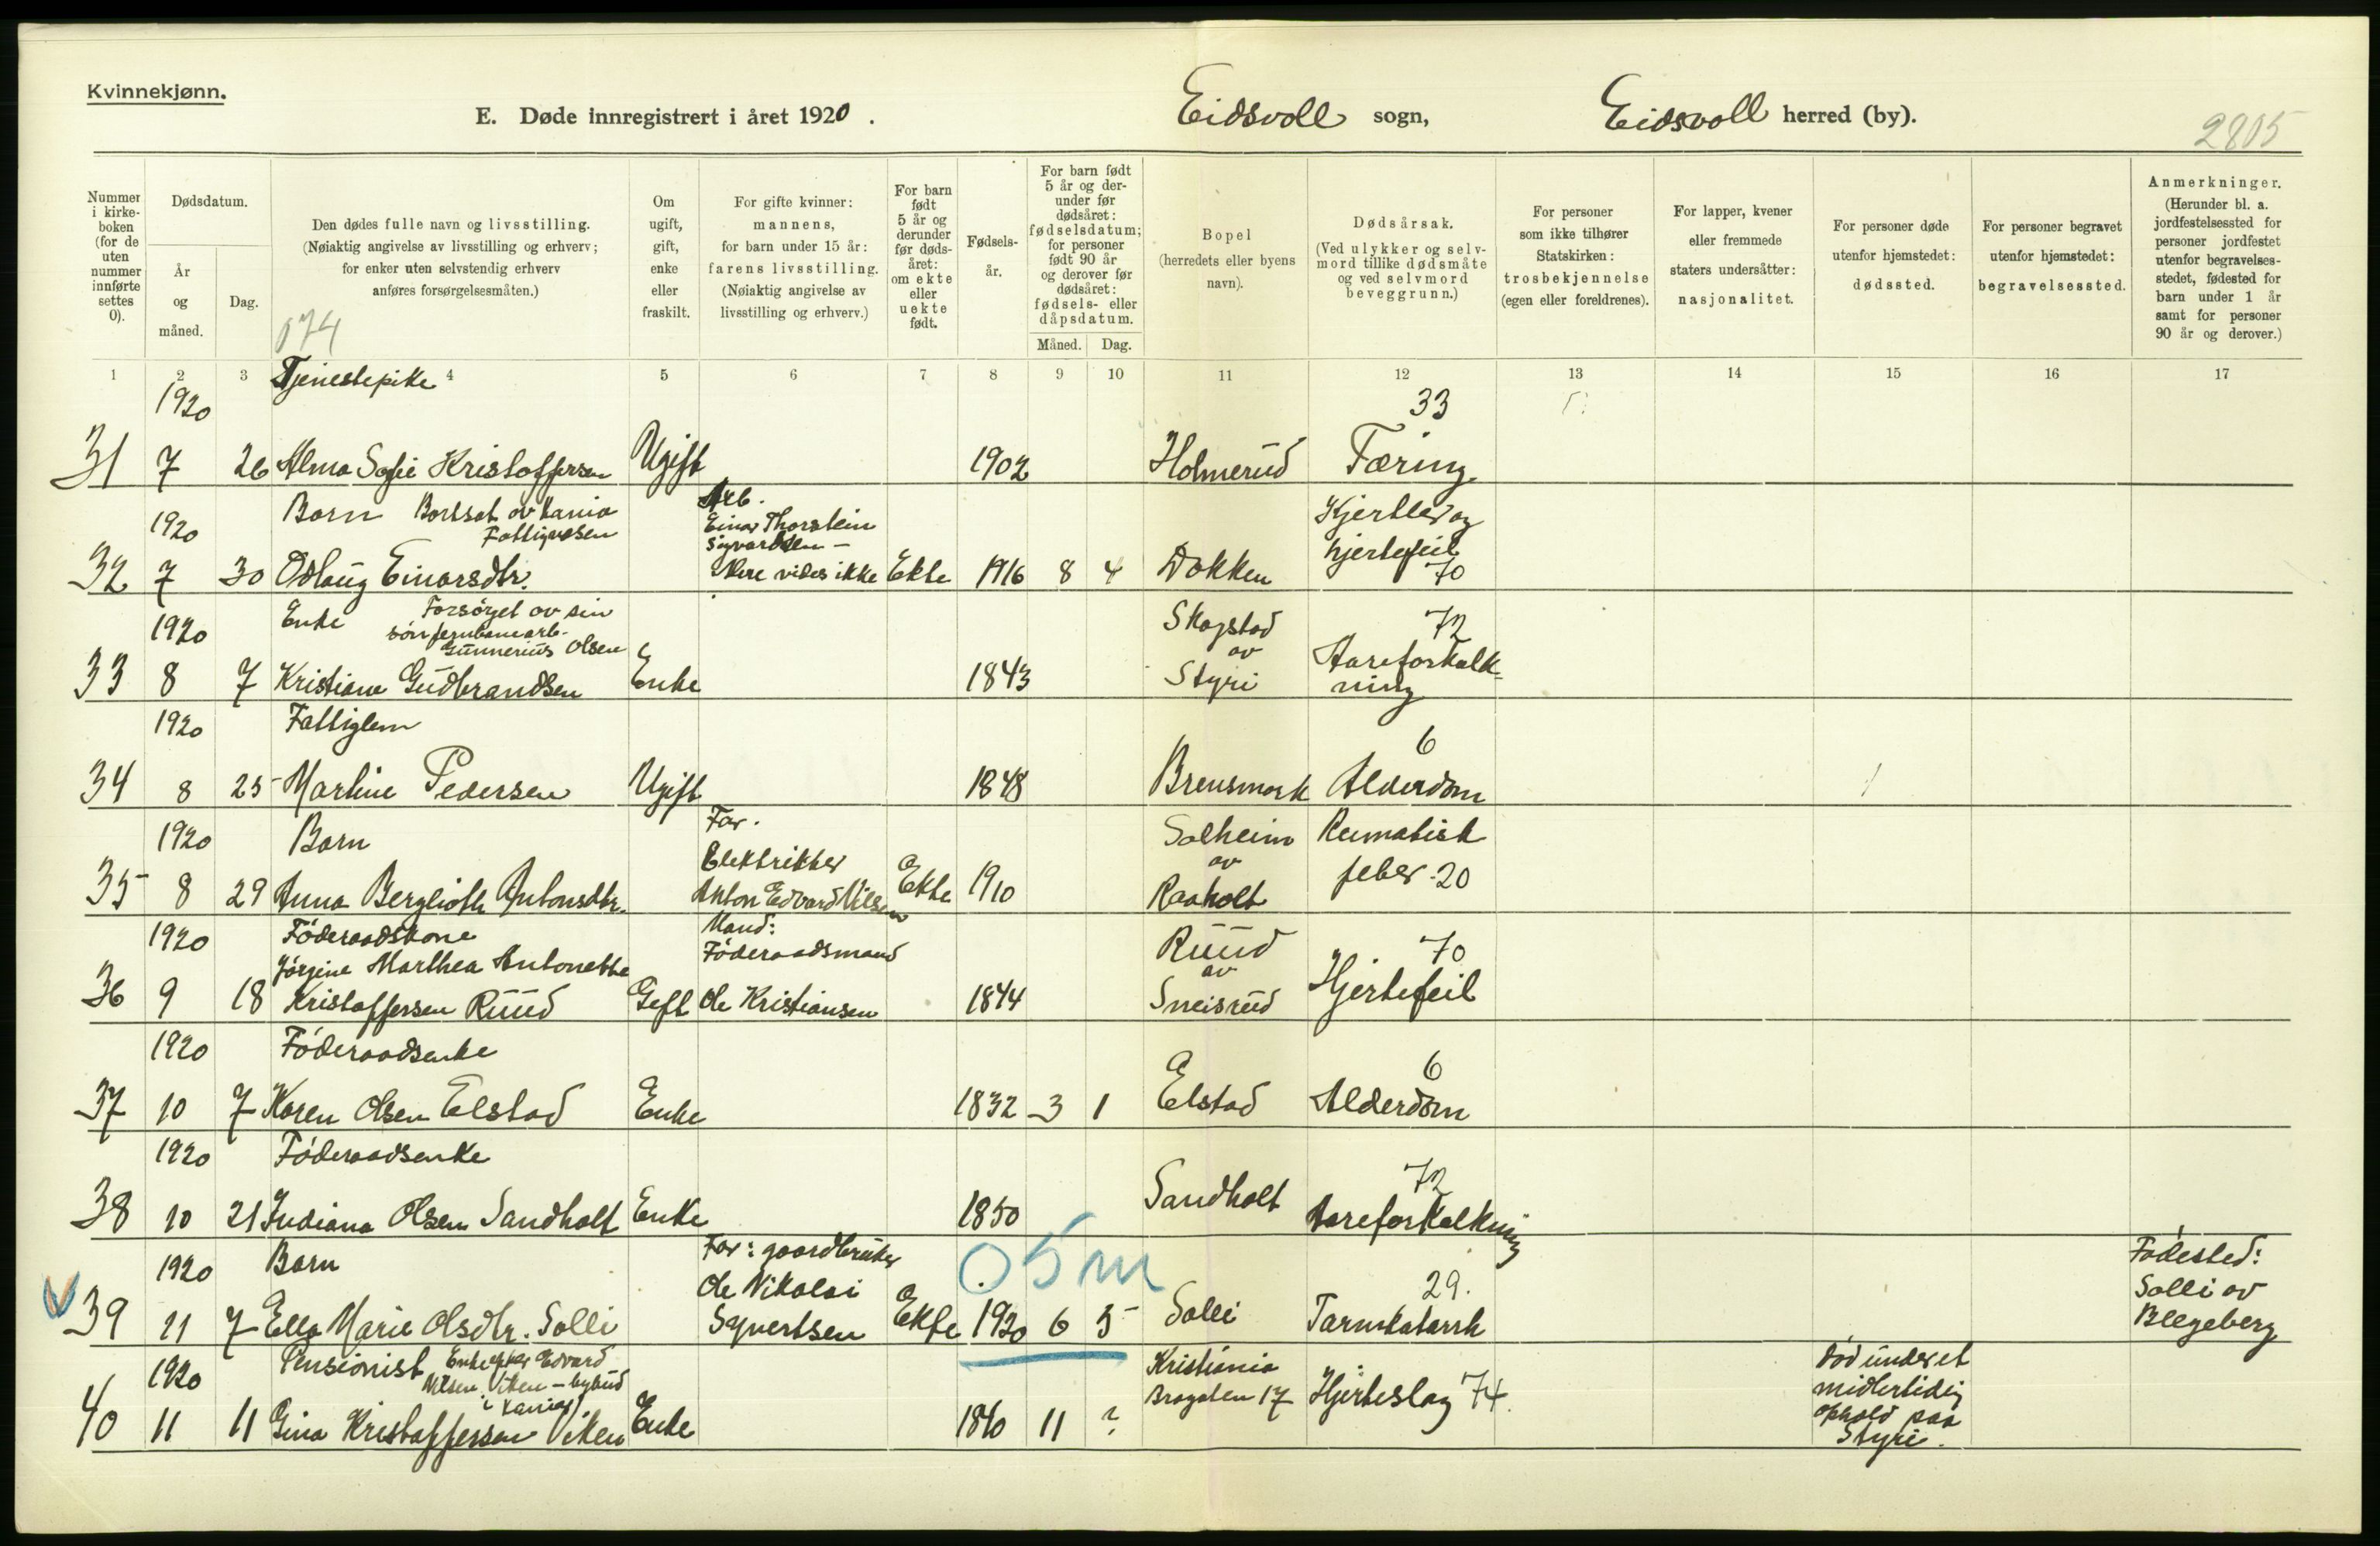 Kvinnekjønn.
E. Døde innregistrert i året 1920.
Eidsvoll sogn,
Eidsvoll herred (by).
2805
Nummer i kirke- boken (for de uten nummer innførte settes 0).
Dødsdatum.
År og måned.
Dag.
Den dødes fulle navn og livsstilling.
(Nøiaktig angivelse av livsstilling og erhverv;
for enker uten selvstendig erhverv
anføres forsørgelsesmåten.)
174
Om ugift, gift, enke eller fraskilt.
For gifte kvinner: mannens, for barn under 15 år: farens livsstilling. (Nøiaktig angivelse av livsstilling og erhverv.)
For barn født 5 år og derunder før døds- året: om ekte eller uekte født.
Fødsels- år.
For barn født 5 år og der- under før dødsåret: fødselsdatum; for personer født 90 år og derover før dødsåret: fødsels- eller dåpsdatum.
Måned. Dag.
Bopel (herredets eller byens navn).
Dødsårsak. (Ved ulykker og selv- mord tillike dødsmåte og ved selvmord beveggrunn.)
For personer som ikke tilhører Statskirken: trosbekjennelse (egen eller foreldrenes).
For lapper, kvener eller fremmede staters undersåtter: nasjonalitet.
For personer døde utenfor hjemstedet: dødssted.
For personer begravet utenfor hjemstedet: begravelsessted.
Anmerkninger. (Herunder bl. a. jordfestelsessted for personer jordfestet utenfor begravelses- stedet, fødested for barn under 1 år samt for personer 90 år og derover.)
1 2 3 4 5 6 7 8 9 10 11 12 13 14 15 16 17
1920 Tjenestepike 33
31 7 26 Alma Sofie Kristoffersen Ugift 1902 Holmerud Tæring
1920 Barn Bortsat av Kania Fattigvesen Arb. Einar Thorstein Sigvardsen – Kjertler og hjertefeil
32 7 30 Odlaug Einarsdtr. Mere vides ikke Ekte 1916 8 4 Dokken 70
1920 Enke Forsörget av sin sön jernbanearb. Gunnerius Olsen Skogstad av 72
33 8 7 Kristiane Gudbrandsen Enke 1843 Styri Aareforkalk- ning
1920 Fattiglem 6
34 8 25 Martine Pedersen Ugift 1848 Brensmork Alderdom
1920 Barn Far. Elektriker Solheim av Reumatisk
35 8 29 Anna Berglioth Antonsdtr. Anton Edvard Nilsen Ekte 1910 Raaholt feber. 20
1920 Föderaadskone Mand: Föderaadsmand Ruud av 70
36 9 18 Jörgine Marthea Antonette Kristoffersen Ruud Gift Ole Kristiansen 1844 Sneisrud Hjertefeil
1920 Föderaadsenke 6
37 10 7 Karen Olsen Elstad Enke 1832 3 1 Elstad Alderdom
1920 Föderaadsenke 72
38 10 21 Indiana Olsen Sandholt Enke 1850 Sandholt Aareforkalkning
1920 Barn Far: gaardbruker Ole Nikolai 05m 29. Födested: Solli av
39 11 7 Ella Marie Olsdtr. Solli Syvertsen Ekte 1920 6 5 Solli Tarmkatarrh Blegeberg
1920 Pensionist Enke efter Edvard Nilsen Viken – bybud i Kania Kristiania Död under et midlertidig ophold paa
40 11 11 Gina Kristoffersen Viken Enke 1860 11 ? Brogaten 17 Hjerteslag 74. Styri.